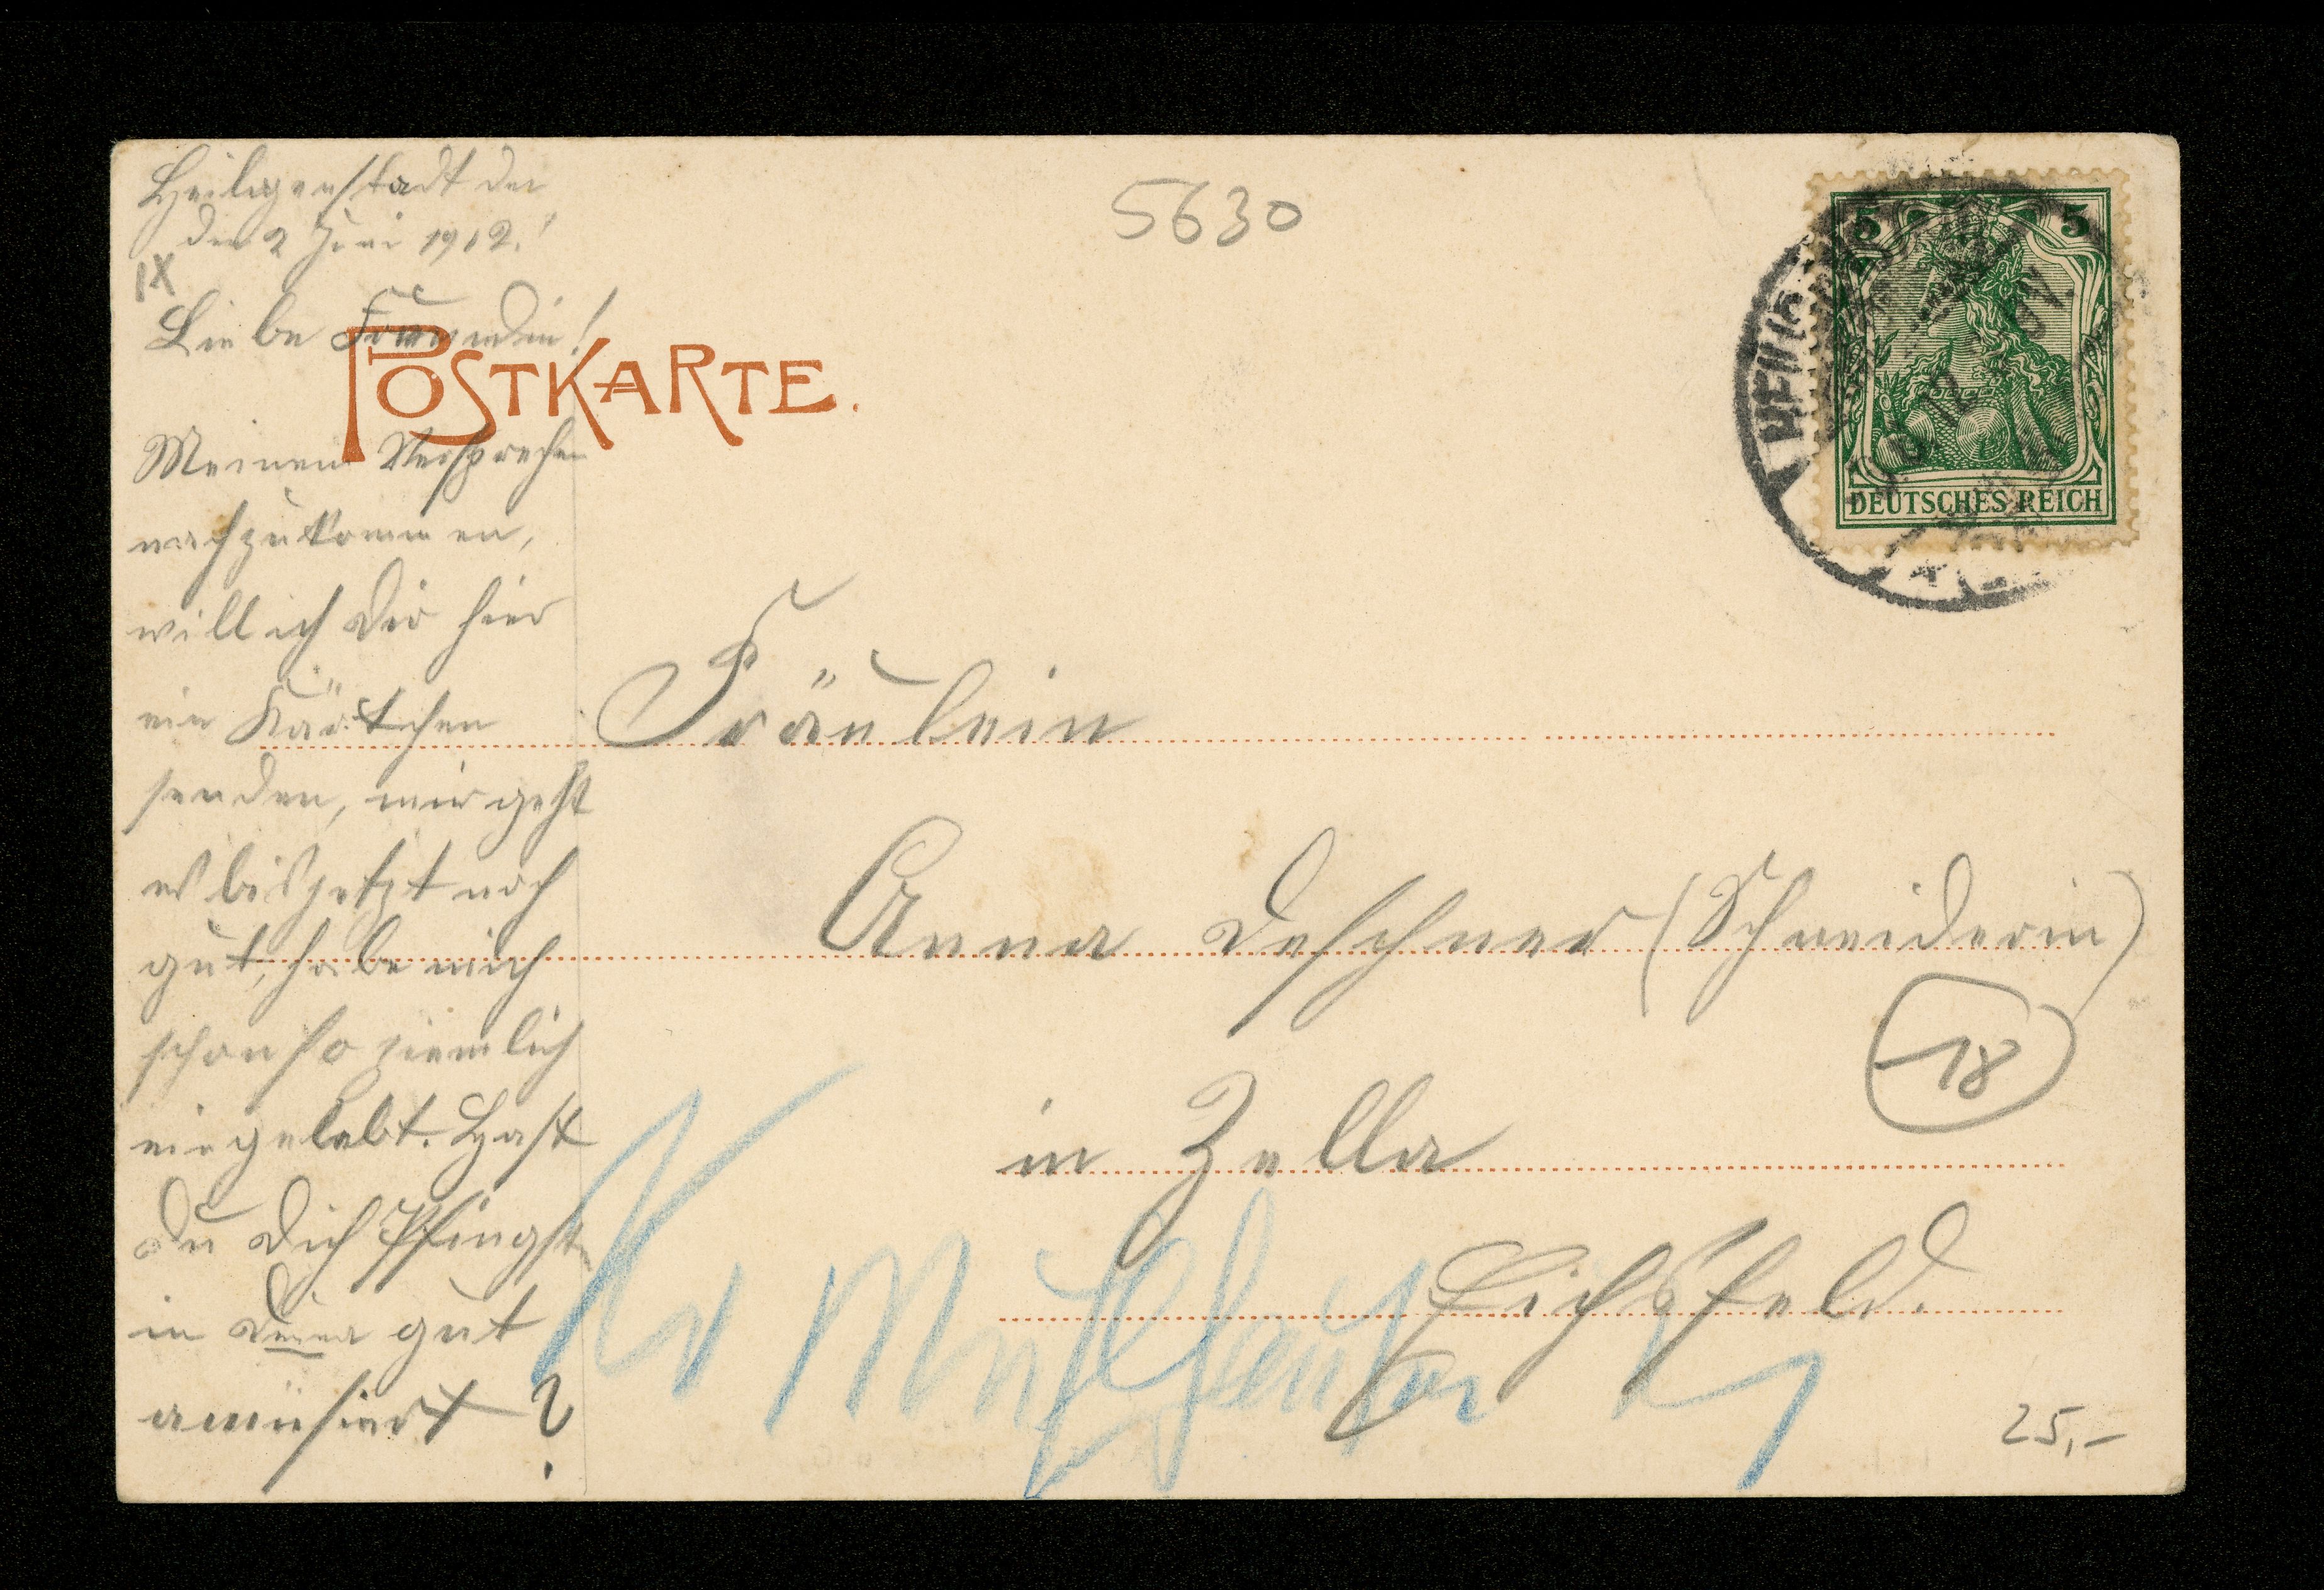 Heiligenstadt den
den 2 Juni 1912.!
IX
Liebe Freundin!
POSTKARTE.
Meinem Versprechen
nachzukommen,
will ich Dir hier
ein Kärtchen
senden, mir geht
es bis jetzt noch
gut, habe mich
schon so ziemlich
eingelebt. Hast
Du Dich Pfingsten
in gut
amüsiert?
5630
5 5
DEUTSCHES REICH
HEILIG
Fräulein
Anna Deschner (Schneiderin)
18
in Zella
Eichsfeld.
Kr Mühlhausen
25,-